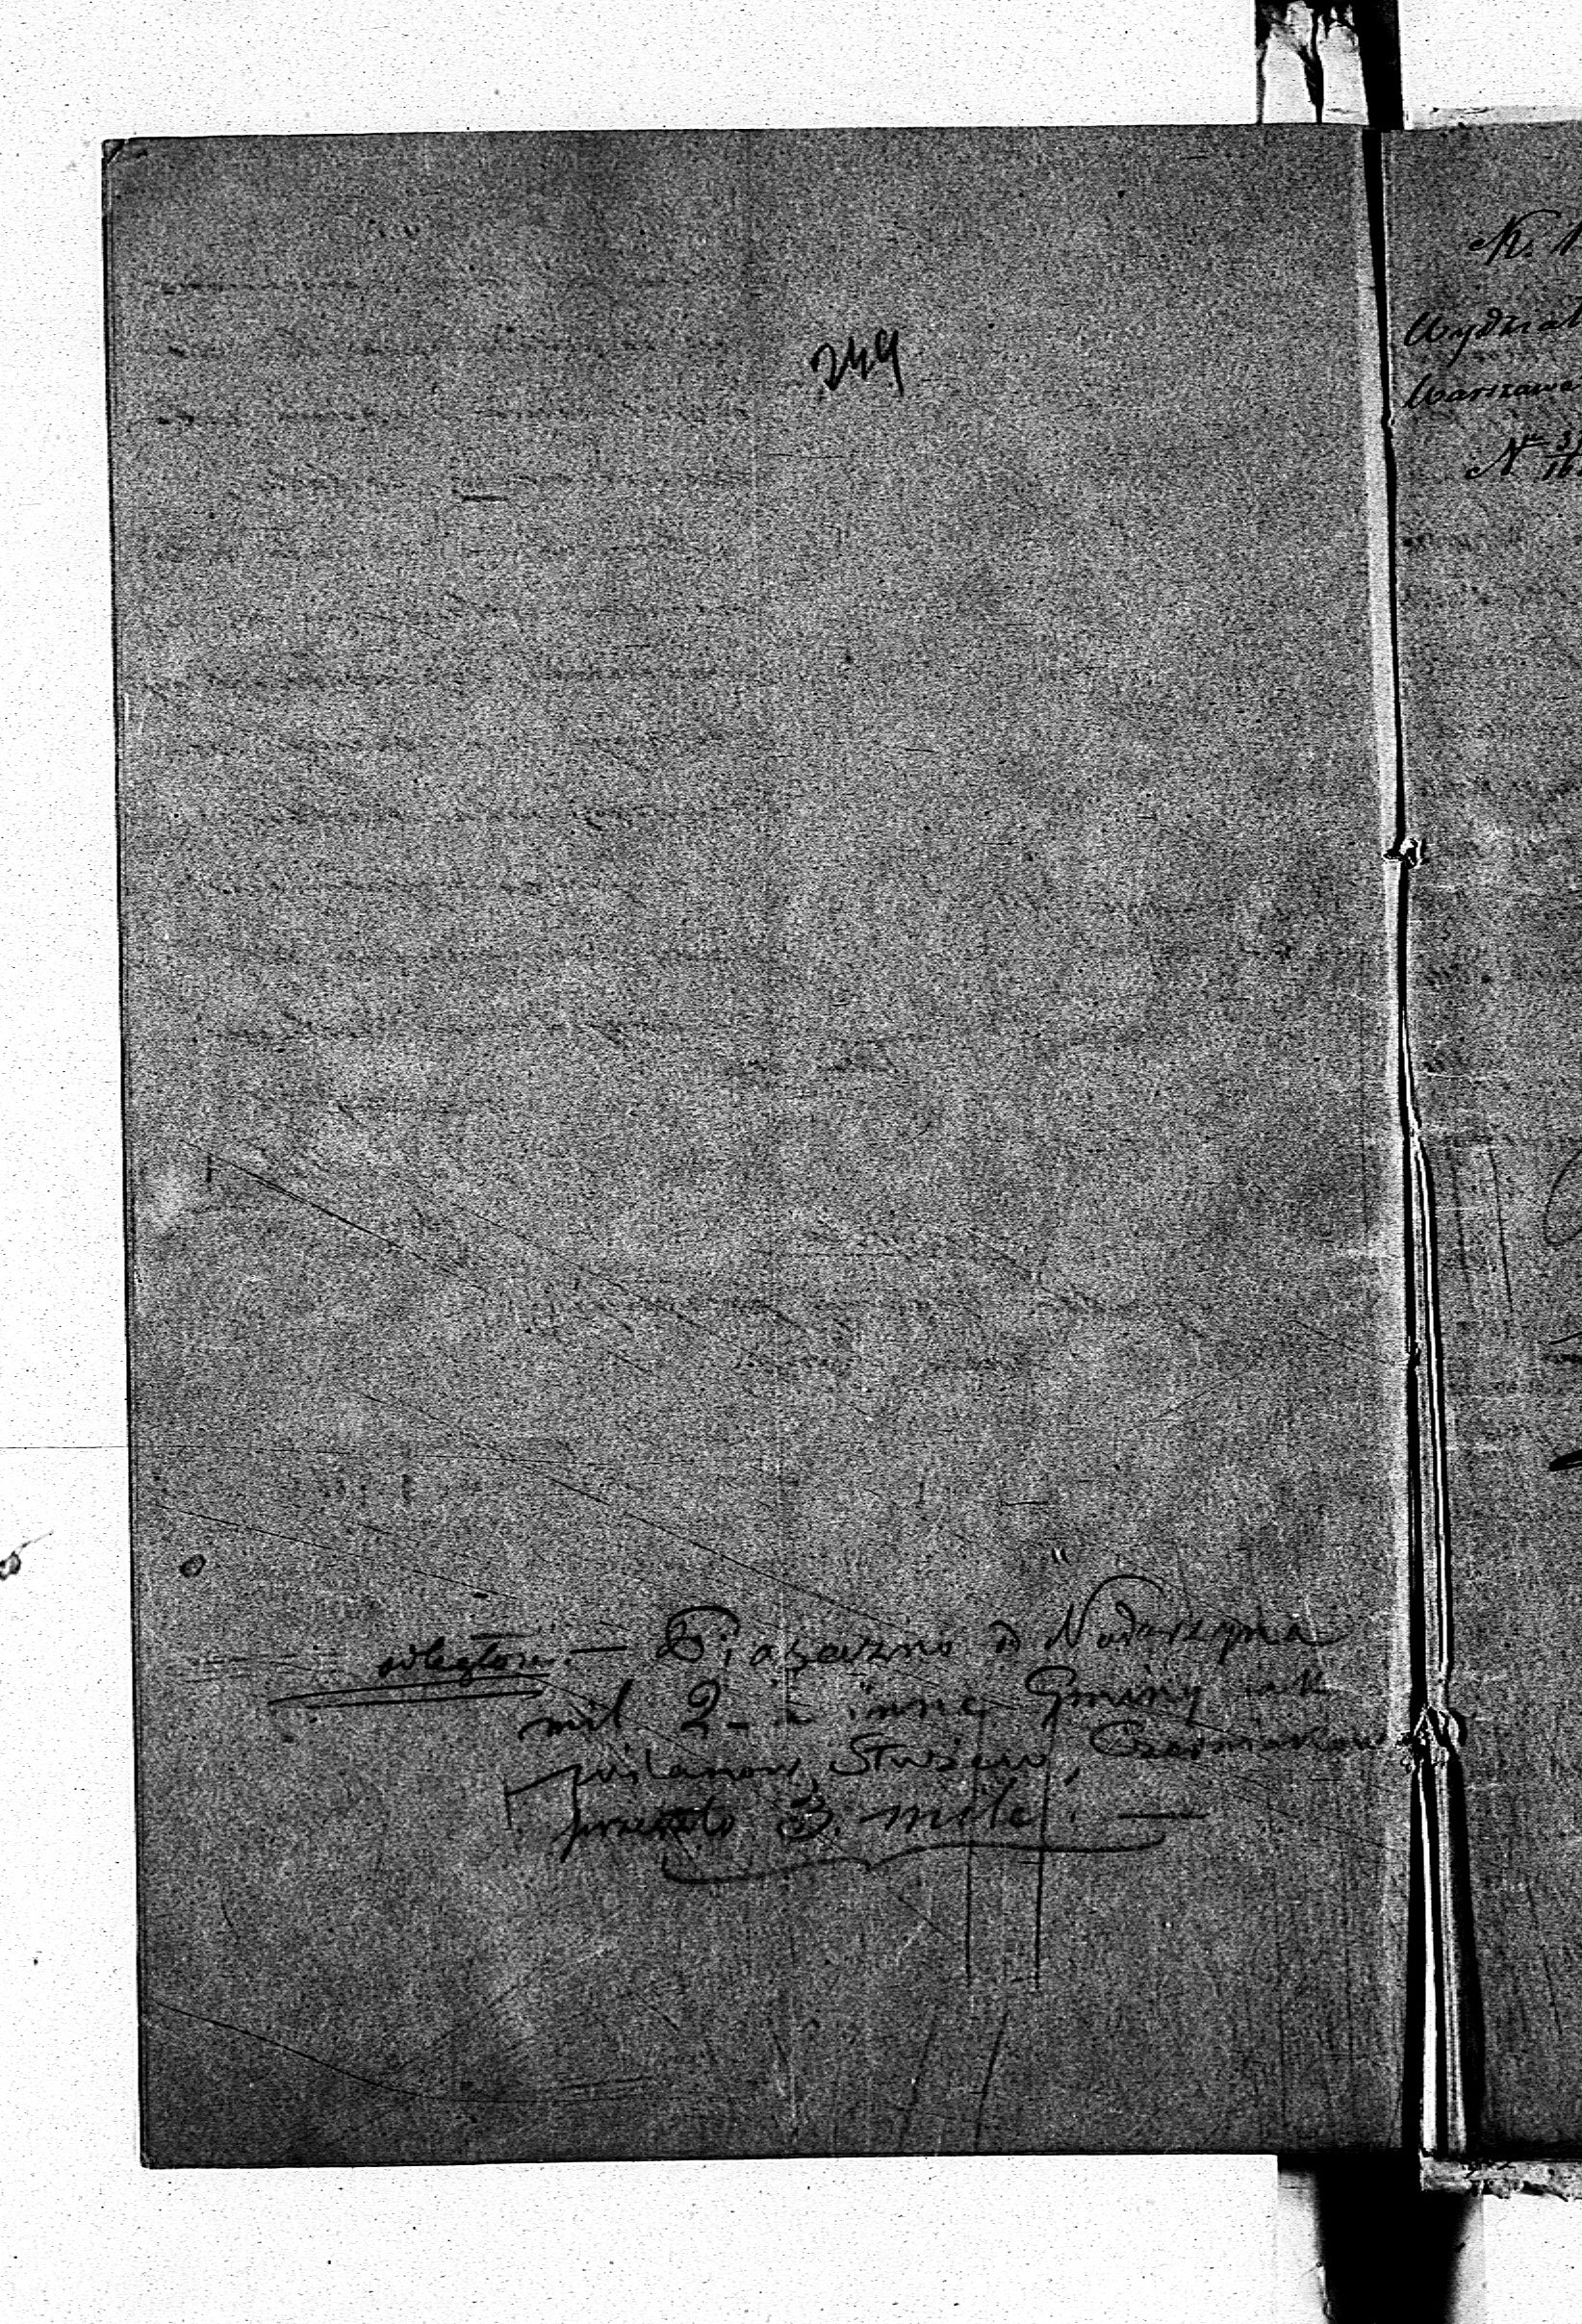 249
odległość. — Piaseczno od Nadarzyna
mil 2 – a inne Gminy jak
Wilanow, Służew, Czerniakow
przeszło 3. mile. —
N.
Wydział
Warszawa
N